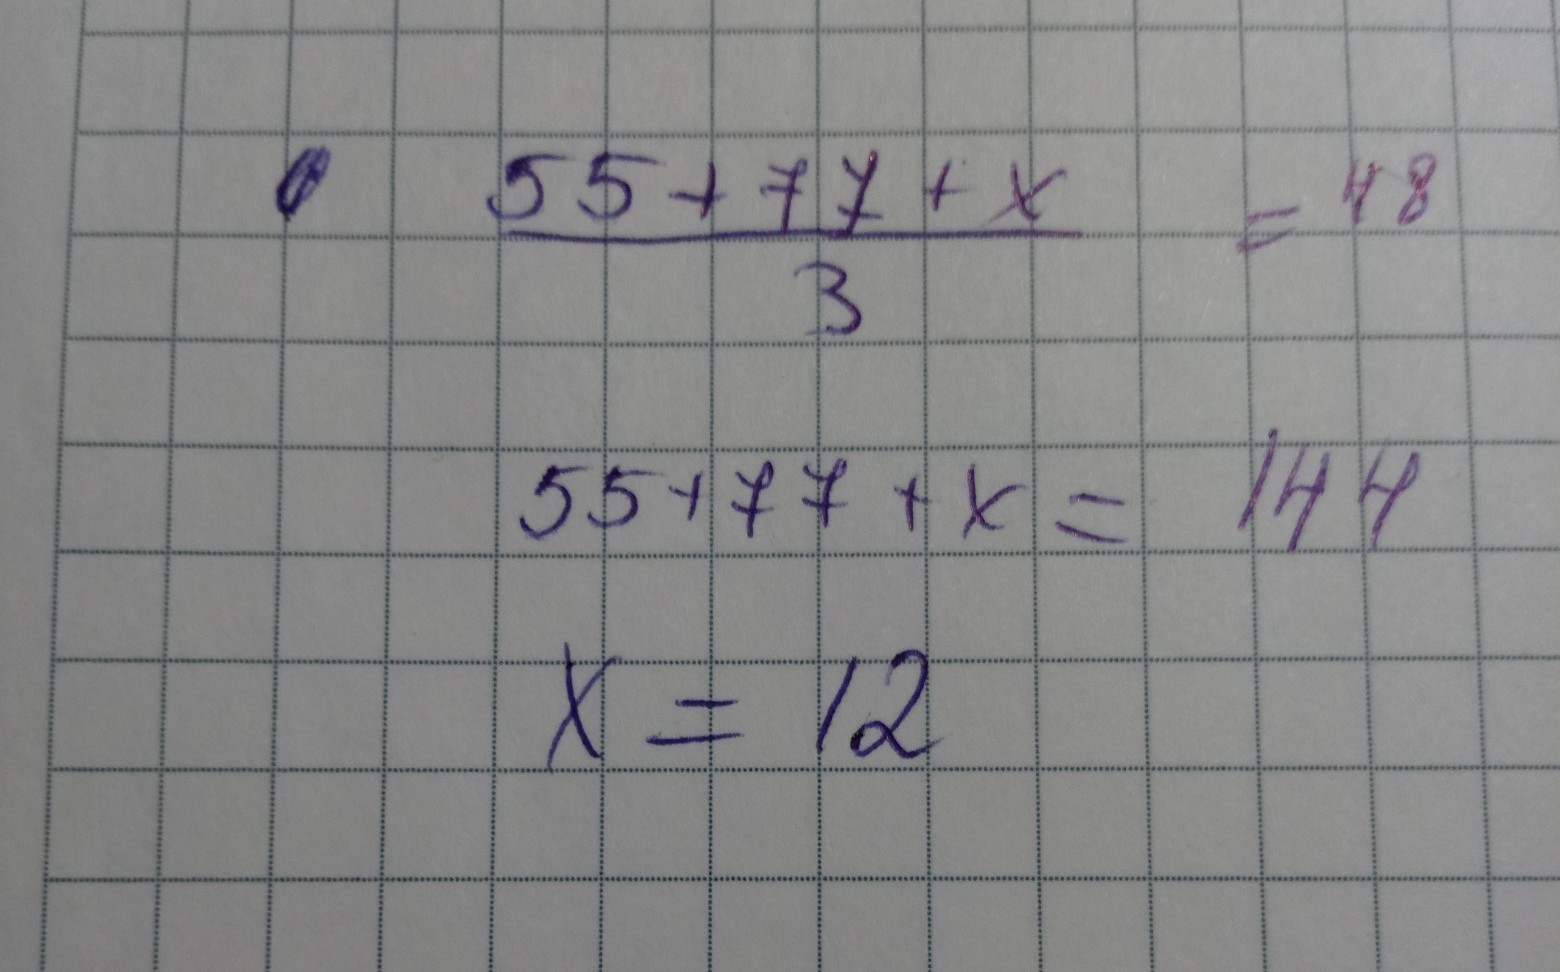 55+77+x = 48
3
55+77+x= 144
x = 12